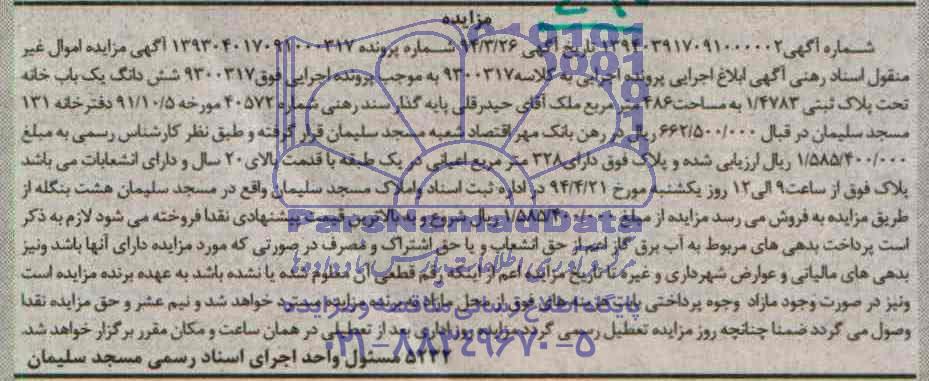 مزایده
شـــماره آگهی۱۳۹۴۰۳۹۱۷۰۹۱۰۰۰۰۰۲ تاریخ آگهی ۹۴/۳/۲۶ شـــماره پرونده ۱۳۹۳۰۴۰۱۷۰۹۱۰۰۰۳۱۷ آگهی مزایده اموال غیر
منقول اسناد رهنی آگهی ابلاغ اجرایی پرونده اجرایی به کلاسه۹۳۰۰۳۱۷ به موجب پرونده اجرایی فوق۹۳۰۰۳۱۷ شش دانگ یک باب خانه
تحت پلاک ثبتی ۱/۴۷۸۳ به مساحت۴۸۶ متر مربع ملک آقای حیدرقلی پایه گذار سند رهنی شماره ۴۰۵۷۲ مورخه ۹۱/۱۰/۵ دفترخانه ۱۳۱
مسجد سلیمان در قبال ۶۶۲/۵۰۰/۰۰۰ ریال در رهن بانک مهر اقتصاد شعبه مسجد سلیمان قرار گرفته و طبق نظر کارشناس رسمی به مبلغ
۱/۵۸۵/۴۰۰/۰۰۰ ریال ارزیابی شده و پلاک فوق دارای۳۲۸ متر مربع اعیانی در یک طبقه با قدمت بالای۲۰ سال و دارای انشعابات می باشد
پلاک فوق از ساعت۹ الی۱۲ روز یکشنبه مورخ ۹۴/۴/۲۱ در اداره ثبت اسناد واملاک مسجد سلیمان واقع در مسجد سلیمان هشت بنگله از
طریق مزایده به فروش می رسد مزایده از مبلغ ۱/۵۸۵/۴۰۰/۰۰۰ ریال شروع و به بالاترین قیمت پیشنهادی نقدا فروخته می شود لازم به ذکر
است پرداخت بدهی های مربوط به آب برق گاز اعم از حق انشعاب و یا حق اشتراک و مصرف در صورتی که مورد مزایده دارای آنها باشد ونیز
بدهی های مالیاتی و عوارض شهرداری و غیره تا تاریخ مزایده اعم از اینکه رقم قطعی آن معلوم شده یا نشده باشد به عهده برنده مزایده است
ونیز در صورت وجود مازاد وجوه پرداختی بابت هزینه های فوق از محل مازاد به برنده مزایده مسترد خواهد شد و نیم عشر و حق مزایده نقدا
وصول می گردد ضمنا چنانچه روز مزایده تعطیل رسمی گردد مزایده روز اداری بعد از تعطیلی در همان ساعت و مکان مقرر برگزار خواهد شد.
۵۲۲۲ مسئول واحد اجرای اسناد رسمی مسجد سلیمان
ParsNamadData
پایگاه اطلاع رسانی مناقصه و مزایده
۰۲۱-۸۸۳۴۹۶۷۰-۵